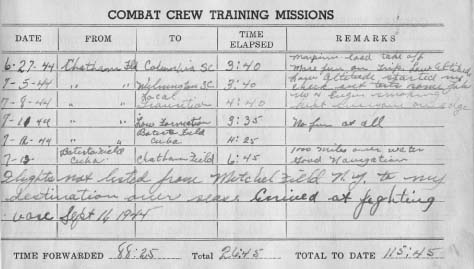 COMBAT CREW TRAINING MISSIONS
DATE FROM TO TIME ELAPSED REMARKS
6-27-44 Chatham Fld Columbia SC 3:40 Maximum load take off
More fun on trip. Low Altitude
7-5-44 " " Wilmington SC 3:40 Low Altitude started my
7-9-44 " " Local Transition 4:40
7-10-44 " " Low Formation 3:35 No fun at all
7-12-44 " " Batista Field Cuba 4:25
7-13 Batista Field Cuba Chatham Field 6:45 1000 miles over water
Good Navigation
Flights not listed from Mitchel Field N.Y. to my
destination over seas. Arrived at fighting
base Sept 16 1944
TIME FORWARDED 88:25 Total 26:45 TOTAL TO DATE 115:45